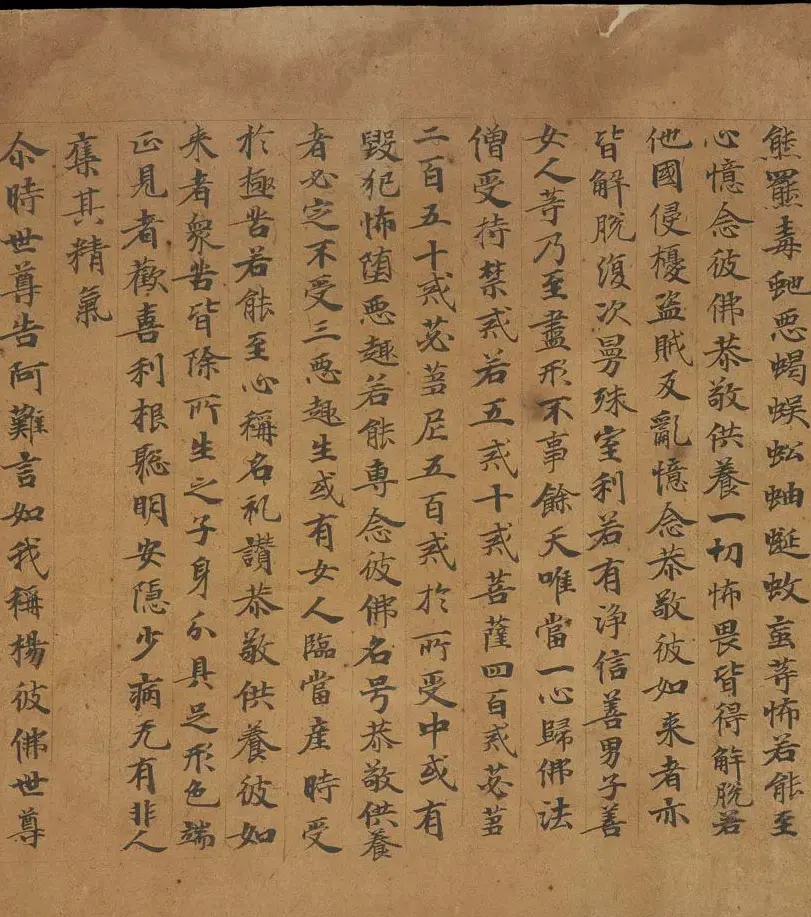 熊羆毒虵恶蝎蜈蚣蚰蜒蚊䖟䓁怖若能至
心憶念彼佛恭敬供養一切怖畏皆得解脫若
他國侵擾盜賊反亂憶念恭敬彼如来者亦
皆解脫復次曼殊室利若有浄信善男子善
女人䓁乃至盡形不事餘天唯當一心歸佛法
僧受持禁戒若五戒十戒菩薩四百戒苾蒭
二百五十戒苾蒭尼五百戒於所受中或有
毀犯怖堕惡趣若能專念彼佛名号恭敬供養
者必定不受三惡趣生或有女人臨當産時受
於極苦若能至心稱名礼讚恭敬供養彼如
来者衆苦皆除所生之子身分具足形色端
正見者歡喜利根聦明安隱少病无有非人
奪其精氣
尒時世尊告阿難言如我稱楊彼佛世尊